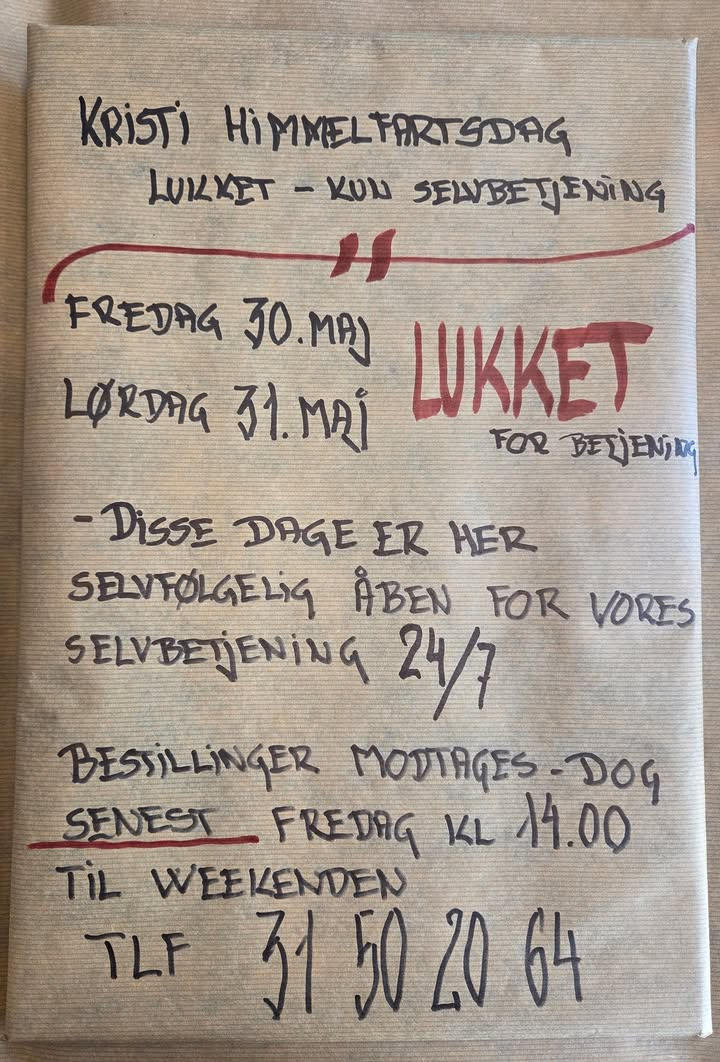 KRISTI HIMMELFARTSDAG
LUKKET - KUN SELVBETJENING
FREDAG 30. MAJ
LØRDAG 31. MAJ
LUKKET
FOR BETJENING
- DISSE DAGE ER HER
SELVFØLGELIG ÅBEN FOR VORES
SELVBETJENING 24/7
BESTILLINGER MODTAGES - DOG
SENEST FREDAG KL 14.00
TIL WEEKENDEN
TLF 31 50 20 64